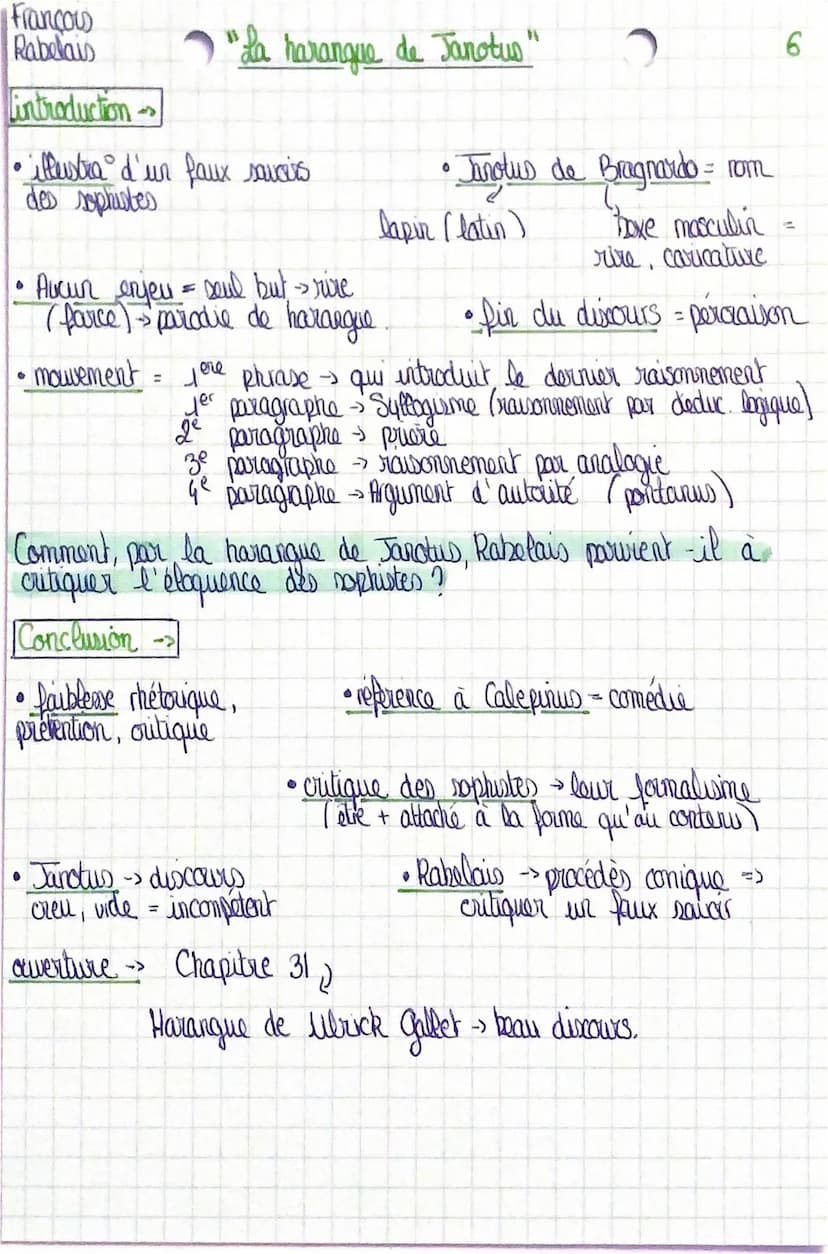 François
Rabelais
"La harangue de Janotus"
6
introduction ->
• illustra° d'un faux savoir
des sophistes
• Janotus de Bragmardo = nom
lapin (latin)
sexe masculin =
rire, caricature
• Aucun enjeu = seul but -> rire
(farce) -> parodie de harangue.
• fin du discours = péroraison
• mouvement = 1ere phrase -> qui introduit le dernier raisonnement
1er paragraphe -> Syllogisme (raisonnement par déduc. logique)
2e paragraphe -> prière
3e paragraphe -> raisonnement par analogie
4e paragraphe -> Argument d'autorité (pontanus)
Comment, par la harangue de Janotus, Rabelais parvient-il à
critiquer l'éloquence des sophistes ?
Conclusion ->
• faiblesse rhétorique,
prétention, critique
• référence à Calepinus = comédie
• critique des sophistes -> leur formalisme
(être + attaché à la forme qu'au contenu)
• Janotus -> discours
creu, vide = incompétent
• Rabelais -> procédés comique =>
critiquer un faux savoir
ouverture -> Chapitre 31
Harangue de Ulrick Gallet -> beau discours.